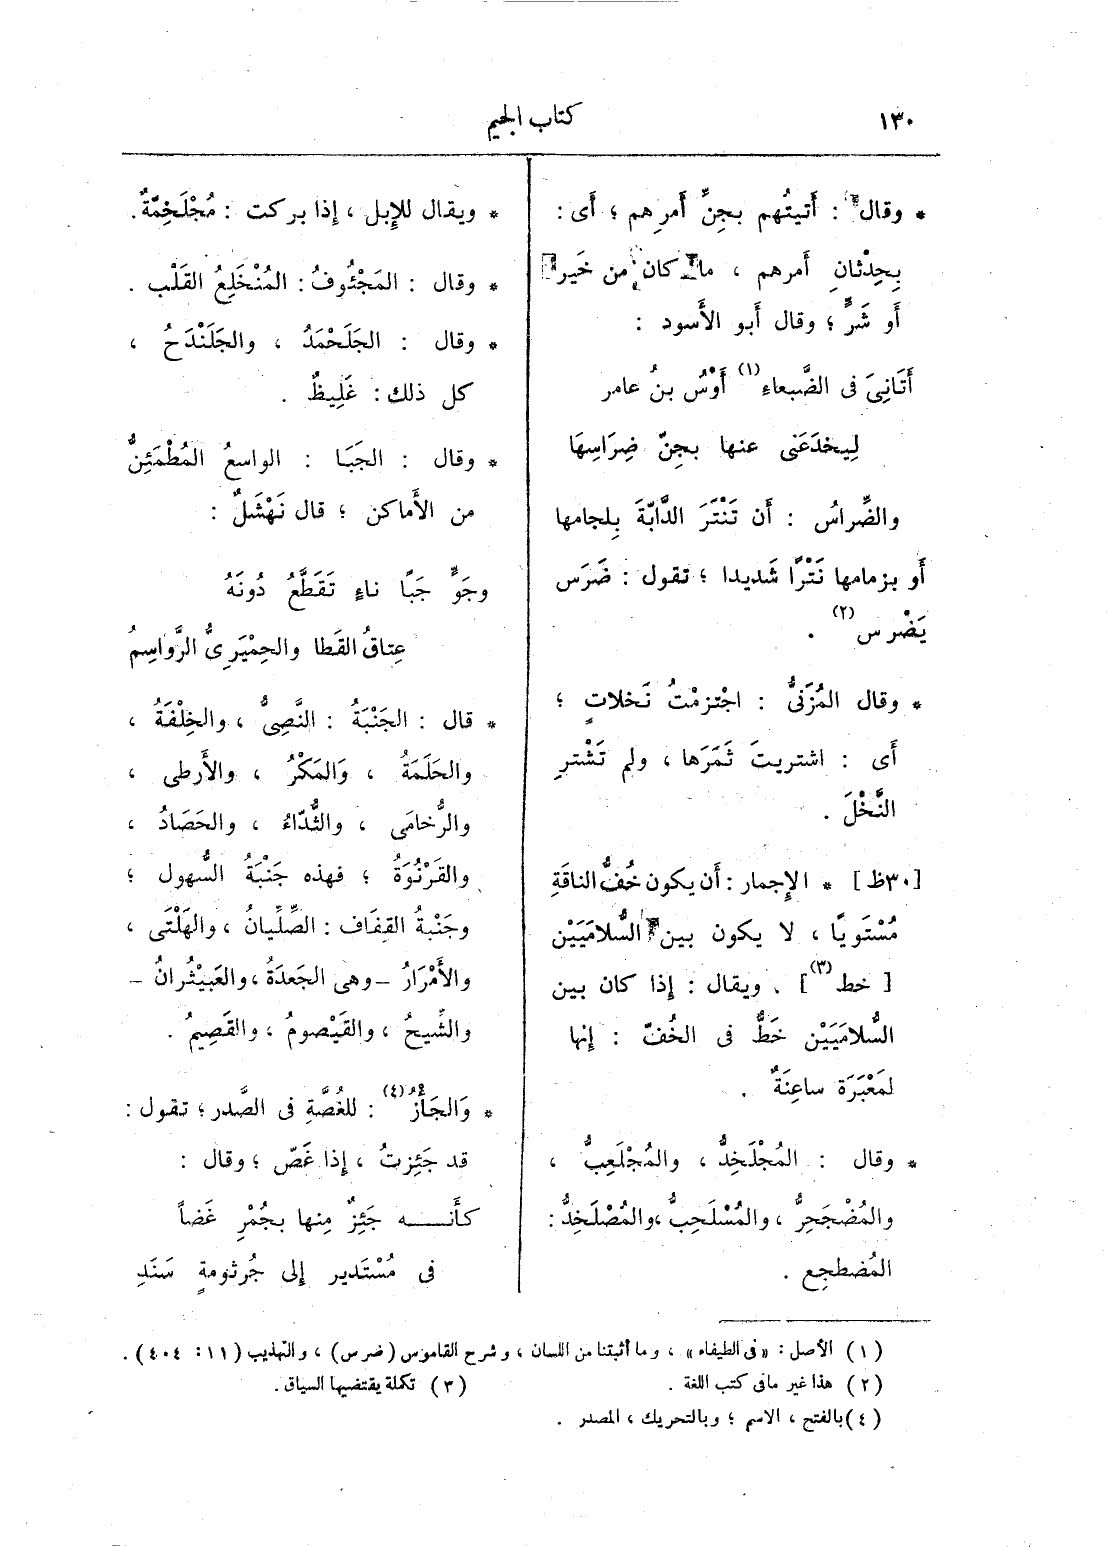 ١٣٠
كتاب الجيم
* وقال : أَتيتُهم بجِنِّ أَمرِهم ؛ أَى :
بِحِدْثانِ أَمرهم ، ما كان من خَير
أَو شَرٍّ ؛ وقال أَبو الأَسود :
أَتَانِىَ فى الضَّبعاء (١) أَوْسُ بنُ عامر
لِيخدَعَنى عنها بجِنّ ضِرَاسِهَا
والضِّراسُ : أَن تَنْتَرَ الدَّابّةَ بِلجامها
أَو بزمامها نَتْرًا شَديدا ؛ تقول : ضَرَس
يَضْرِس (٢) .
* وقال المُزَنىُّ : اجْتزمْتُ نَخلاتٍ ؛
أَى : اشتريتَ ثَمَرَها ، ولم تَشْترِ
النَّخْلَ .
[٣٠ظ] * الإِجمار : أَن يكون خُفُّ الناقَةِ
مُسْتَوِيًا ، لا يكون بين السُّلامَيَيْن
[ خط (٣) ] . ويقال : إِذا كان بين
السُّلامَيَيْن خَطٌّ فى الخُفّ : إِنها
لمَعْبَرَة ساعِنَةٌ .
* وقال : المُجْلَخِدُّ ، والمُجْلَعِبُّ ،
والمُضْجَحِرُّ ، والمُسْلَحِبُّ ، والمُصْلَخِدُّ :
المُضطجِع .
* ويقال للإِبل ، إِذا بركت : مُجْلَخِمَّةٌ .
* وقال : المَجْئُوفُ : المُنْخَلِعُ القَلْب .
* وقال : الجَلَحْمَدُ ، والجَلَنْدَحُ ،
كل ذلك : غَلِيظٌ .
* وقال : الجَبَا : الواسعُ المُطْمَئِنُّ
من الأَماكن ؛ قال نَهْشَلٌ :
وجَوٍّ جَبًا ناءٍ تَقَطَّعُ دُونَهُ
عِتاقُ القَطا والحِمْيَرِىُّ الرَّواسِمُ
* قال : الجَنْبَةُ : النَّصِىُّ ، والخِلْفَةُ ،
والحَلَمَةُ ، وَالمَكْرُ ، والأَرطى ،
والرُّخامَى ، والثُّدّاءُ ، والحَصَادُ ،
والقَرْنُوَةُ ؛ فهذه جَنْبَةُ السُّهول ؛
وجَنْبةُ القِفَاف : الصِّلِّيانُ ، والهَلْتَى ،
والأَمْرَارُ - وهى الجَعدَةُ ، والعَبيْثُرانُ -
والشِّيحُ ، والقَيْصومُ ، والقَصِيمُ .
* وَالجَأْزُ (٤) : للغُصَّةِ فى الصَّدر ؛ تقول :
قد جَئِزتُ ، إِذا غَصّ ؛ وقال :
كأَنــه جَئِزٌ مِنها بجُمْرِ غَضاً
فى مُسْتَدير إِلى جُرثومةٍ سَنَدِ
(١) الأصل : «فى الطيفاء» ، وما أثبتنا من اللسان ، وشرح القاموس (ضرس) ، والتهذيب (١١ : ٤٠٤) .
(٢) هذا غير مافى كتب اللغة . (٣) تكملة يقتضيها السياق .
(٤) بالفتح ، الاسم ؛ وبالتحريك ، المصدر .